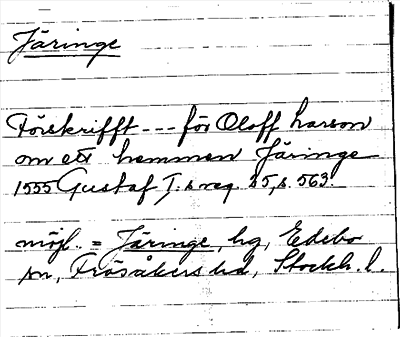 Järinge
Förskrifft --- för Oloff Larson
om ett hemman Järinge
1555 Gustaf I:s reg. 25, s. 563.
möjl. = Järinge, hg, Edebo
sn, Frösåkers hd, Stockh. l.